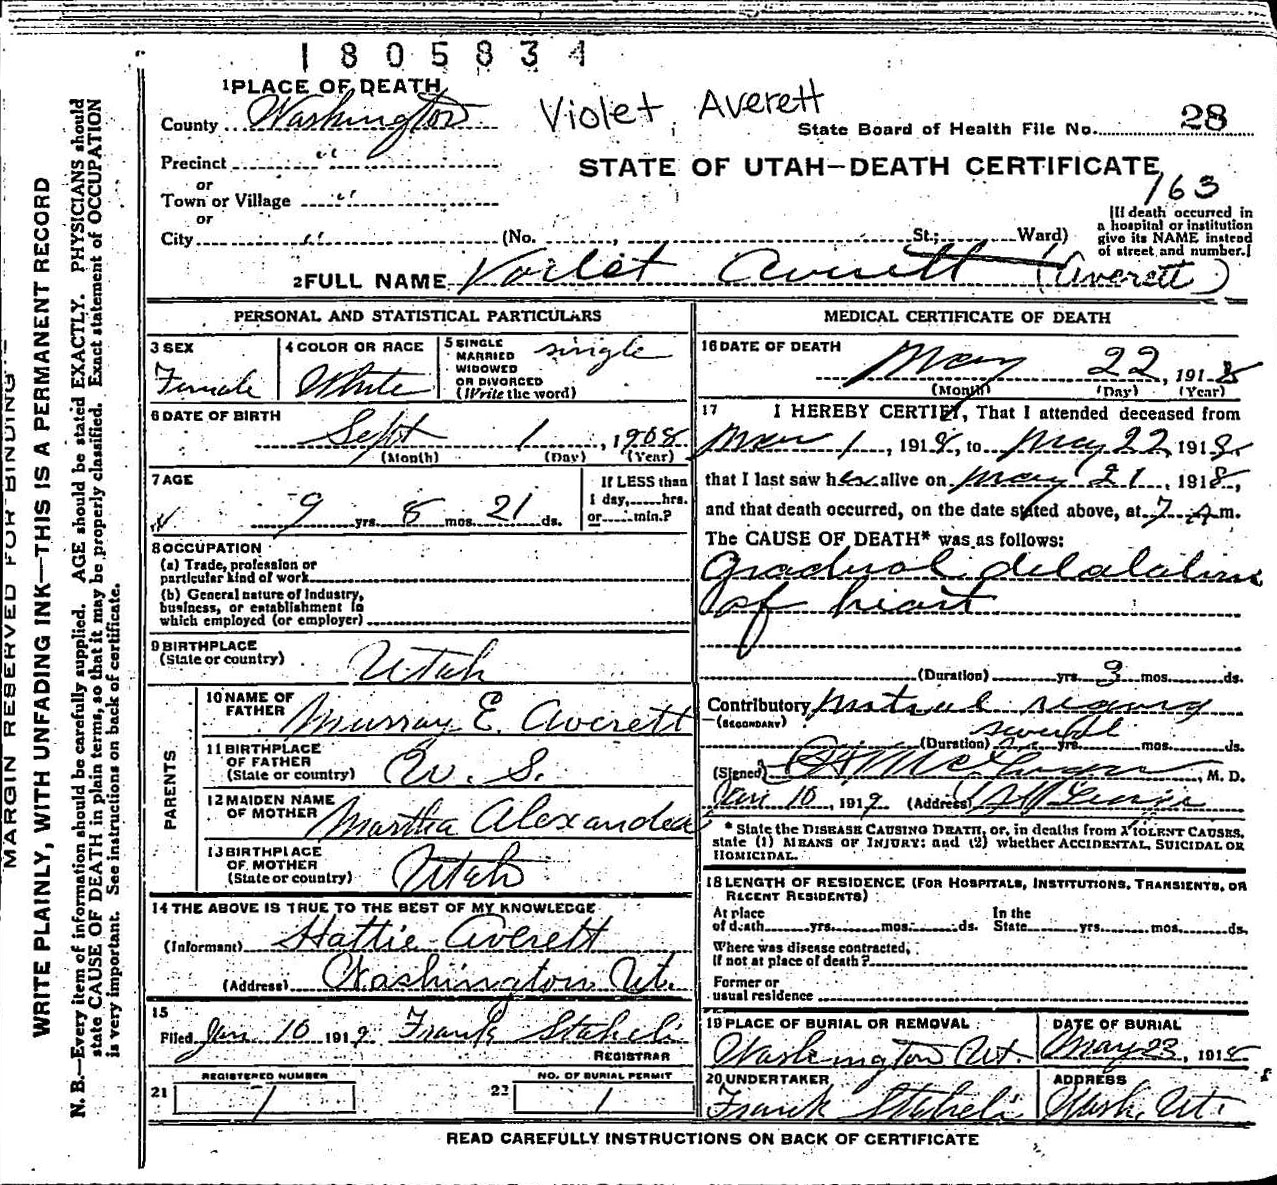 1805834
1 PLACE OF DEATH
County Washington
Violet Averett
State Board of Health File No. 28
Precinct "
STATE OF UTAH—DEATH CERTIFICATE
or
163
Town or Village "
or
City "
(No. , St.; Ward)
[If death occurred in
a hospital or institution
give its NAME instead
of street and number.]
2 FULL NAME Voilet Averett (Averett)
MARGIN RESERVED FOR BINDING
WRITE PLAINLY, WITH UNFADING INK—THIS IS A PERMANENT RECORD
N. B.—Every item of information should be carefully supplied. AGE should be stated EXACTLY. PHYSICIANS should
state CAUSE OF DEATH in plain terms, so that it may be properly classified. Exact statement of OCCUPATION
is very important. See instructions on back of certificate.
PERSONAL AND STATISTICAL PARTICULARS
3 SEX
Female
4 COLOR OR RACE
White
5 SINGLE
MARRIED
WIDOWED
OR DIVORCED
(Write the word)
single
6 DATE OF BIRTH
Sept 1, 1908
(Month) (Day) (Year)
7 AGE
9 yrs. 8 mos. 21 ds.
If LESS than
1 day, hrs.
or min.?
8 OCCUPATION
(a) Trade, profession or
particular kind of work
(b) General nature of Industry,
business, or establishment in
which employed (or employer)
9 BIRTHPLACE
(State or country)
Utah
PARENTS
10 NAME OF
FATHER
Murray E. Averett
11 BIRTHPLACE
OF FATHER
(State or country)
S.
12 MAIDEN NAME
OF MOTHER
Martha Alexander
13 BIRTHPLACE
OF MOTHER
(State or country)
Utah
14 THE ABOVE IS TRUE TO THE BEST OF MY KNOWLEDGE
(Informant) Hattie Averett
(Address) Washington Ut.
15
Filed Jan 10 1919 Frank Staheli
REGISTRAR
21 REGISTERED NUMBER
1
22 NO. OF BURIAL PERMIT
1
MEDICAL CERTIFICATE OF DEATH
16 DATE OF DEATH
May 22, 1918
(Month) (Day) (Year)
17 I HEREBY CERTIFY, That I attended deceased from
Mar 1, 1918, to May 22 1918.
that I last saw her alive on May 21, 1918,
and that death occurred, on the date stated above, at 7 A m.
The CAUSE OF DEATH* was as follows:
Gradual delalation
of heart
(Duration) yrs. 3 mos. ds.
Contributory
(SECONDARY)
(Duration) yrs. mos. ds.
(Signed) , M. D.
Jan 10, 1919 (Address)
* State the DISEASE CAUSING DEATH, or, in deaths from VIOLENT CAUSES,
state (1) MEANS OF INJURY; and (2) whether ACCIDENTAL, SUICIDAL OR
HOMICIDAL.
18 LENGTH OF RESIDENCE (FOR HOSPITALS, INSTITUTIONS, TRANSIENTS, OR
RECENT RESIDENTS)
At place
of death yrs. mos. ds.
In the
State yrs. mos. ds.
Where was disease contracted,
if not at place of death?
Former or
usual residence
19 PLACE OF BURIAL OR REMOVAL
Washington Ut.
DATE OF BURIAL
May 23, 1918
20 UNDERTAKER
Frank Staheli
ADDRESS
Wash. Ut.
READ CAREFULLY INSTRUCTIONS ON BACK OF CERTIFICATE